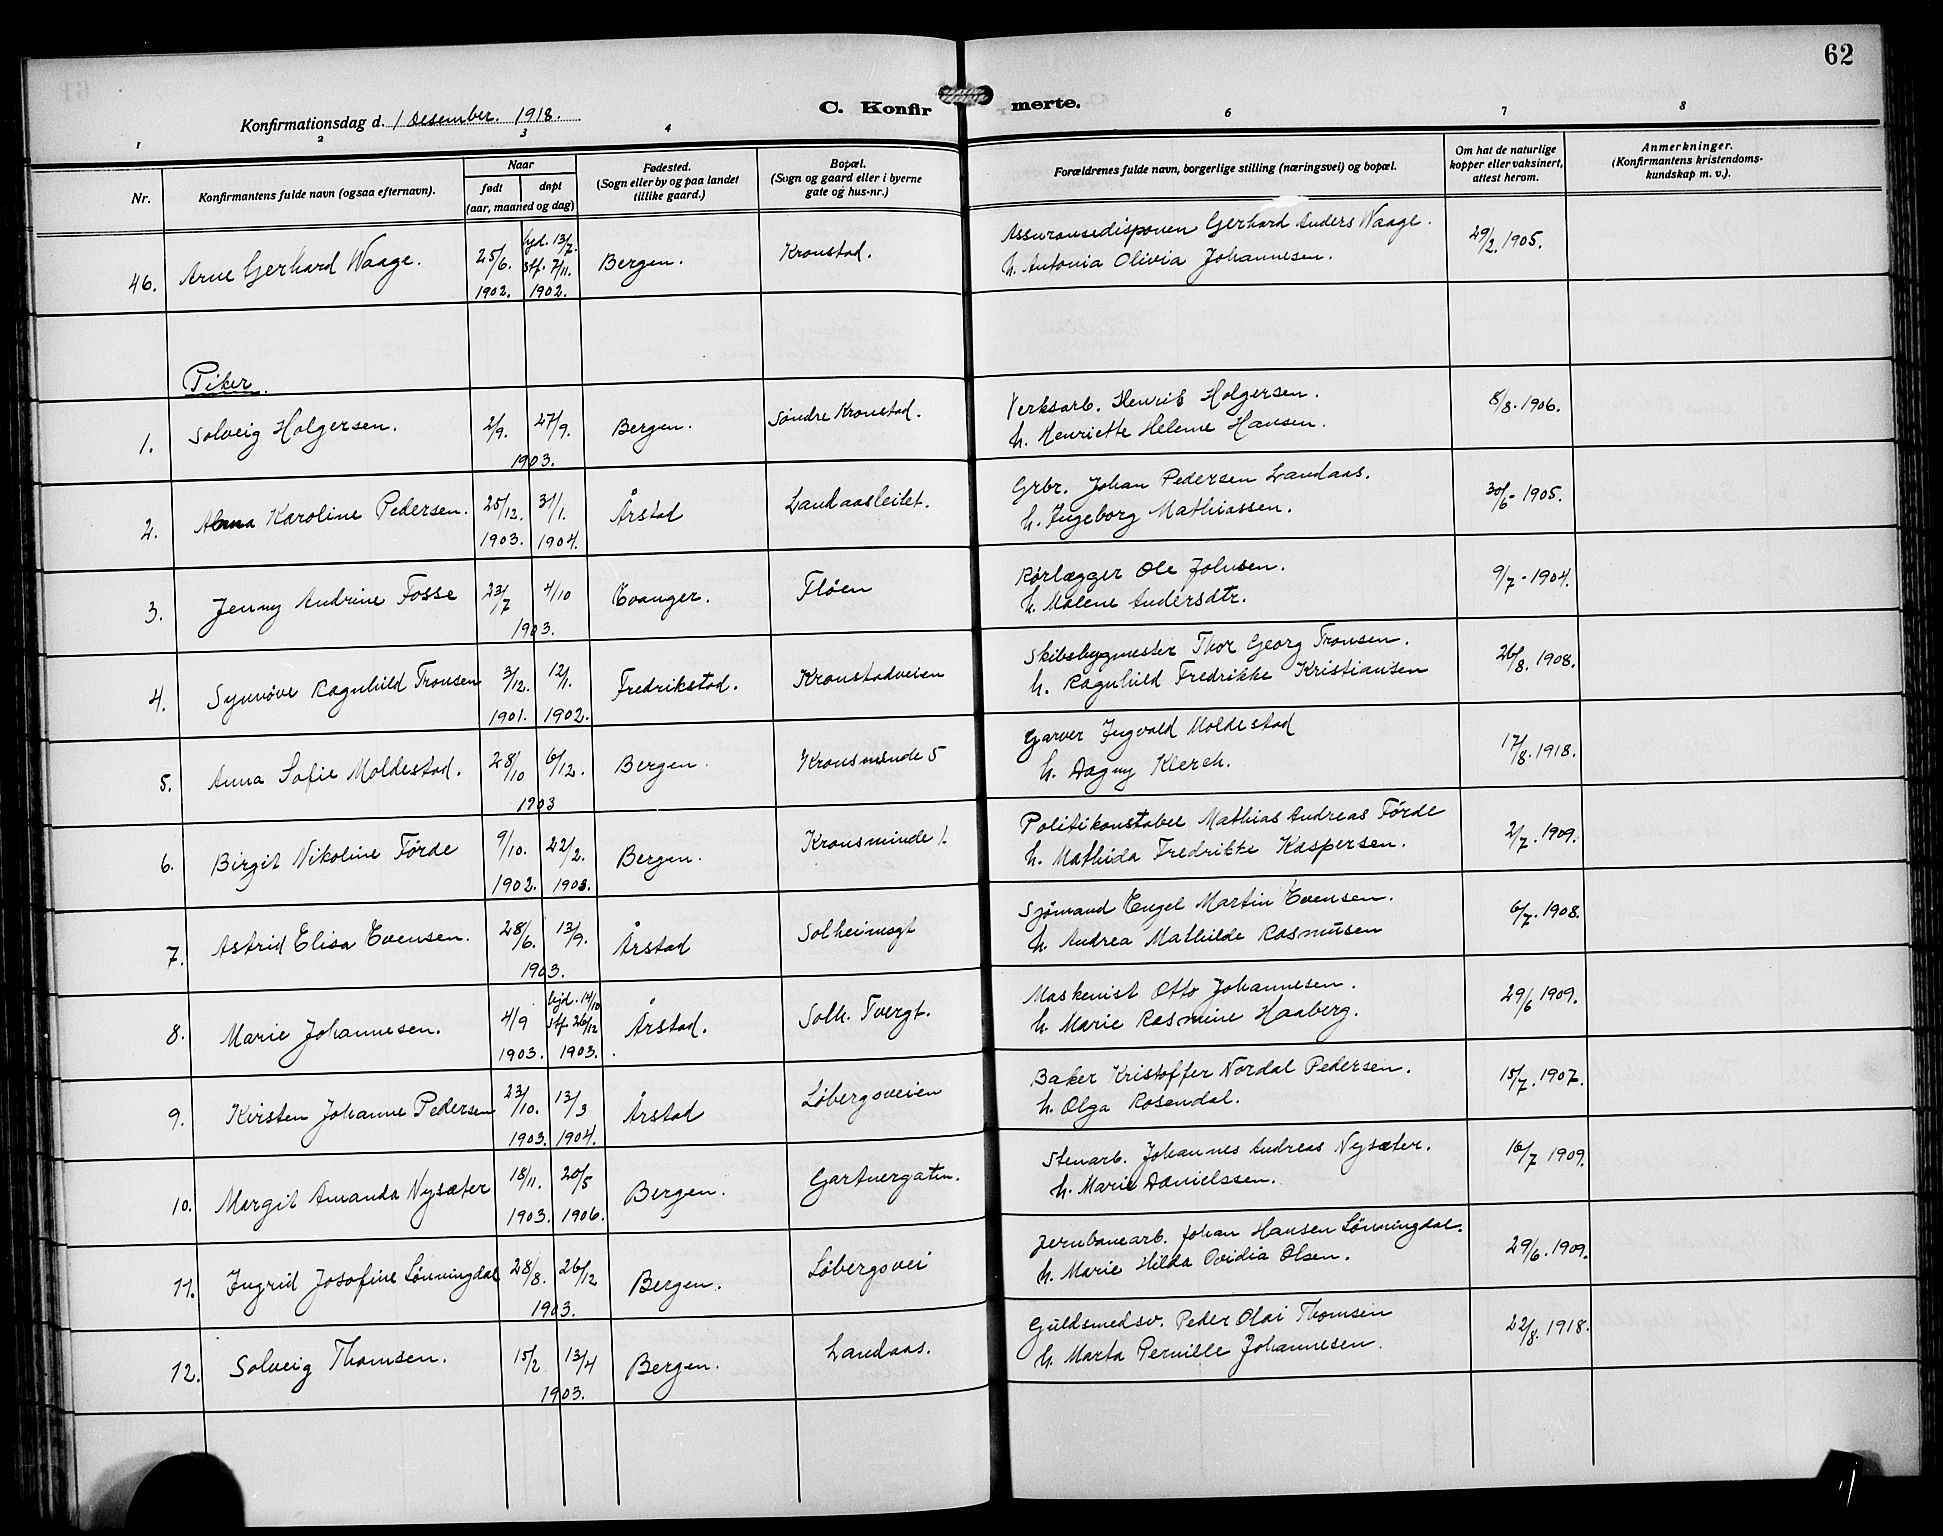 62
C. Konfirmerte.
Konfirmationsdag d. 1 desember. 1918.
1 2 3 4 6 7 8
Nr.
Konfirmantens fulde navn (ogsaa efternavn).
Naar
født døpt
(aar, maaned og dag)
Fødested.
(Sogn eller by og paa landet
tillike gaard.)
Bopæl.
(Sogn og gaard eller i byerne
gate og hus-nr.)
Forældrenes fulde navn, borgerlige stilling (næringsvei) og bopæl.
Om hat de naturlige
kopper eller vaksinert,
attest herom.
Anmerkninger.
(Konfirmantens kristendoms-
kundskap m. v.).
46. Arne Gerhard Waage. 25/6. 1902. hjd. 13/7. stf. 7/11. 1902. Bergen. Kronstad.
Assuransedisponen Gerhard Anders Waage.
h. Antonia Olivia Johannesen.
29/2. 1905.
Piker.
1. Solveig Holgersen. 2/9. 27/9. 1903. Bergen. Søndre Kronstad.
Verksarb. Henrik Holgersen.
h. Henriette Helene Hansen.
8/8. 1906.
2. Karoline Pedersen. 25/12. 1903. 31/1. 1904. Årstad Landaasleitet.
Grbr. Johan Pedersen Landaas.
h. Ingeborg Mathiassen.
30/6 - 1905.
3. Jenny Andrine Fosse 23/7 4/10 1903. Evanger. Fløen
Rørlægger Ole Johnsen.
h. Malene Andersdtr.
9/7 - 1904.
4. Synnøve Ragnhild Tronsen 3/12. 1901. 12/1. 1902. Fredrikstad. Kronstadveien
Skibsbygmester Thor Georg Tronsen.
h. Ragnhild Fredrikke Kristiansen
26/8. 1908.
5. Anna Sofie Moldestad. 28/10 6/12. 1903 Bergen. Kronsminde 5
Garver Ingvald Moldestad
h. Dagny Klerck.
17/8. 1918.
6. Birgit Nikoline Førde 9/10. 1902. 22/2. 1903. Bergen. Kronsminde 1.
Politikonstabel Mathias Andreas Førde
h. Mathilda Fredrikke Kaspersen.
2/7. 1909.
7. Astrid Elisa Evensen. 28/6. 13/9. 1903. Årstad Solheimsgt
Sjømand Engel Martin Evensen.
h. Andrea Mathilde Rasmusen
6/7. 1908.
8. Marie Johannesen. 4/9 1903. hjd. 14/10 stf. 26/12 1903. Årstad. Solh. Tvergt.
Maskenist Otto Johannesen.
h. Marie Rasmine Haaberg.
29/6 1909.
9. Kirsten Johanne Pedersen 23/10. 1903. 13/3 1904. Årstad Løbergsveien
Baker Kristoffer Nordal Pedersen.
h. Olga Rosendal.
15/7. 1907.
10. Margit Amanda Nysæter 18/11. 1903. 20/5 1906. Bergen. Gartnergaten.
Stenarb. Johannes Andreas Nysæter.
h. Marie Danielssen.
16/7 1909.
11. Ingrid Josefine Lønningdal 28/8. 26/12 1903. Bergen. Løbergsvei
Jernbanearb. Johan Hansen Lønningdal.
h. Marie Hilda Ovidia Olsen.
29/6. 1909.
12. Solveig Thomsen. 15/2. 13/4 1903. Bergen. Landaas.
Guldsmedsv. Peder Olai Thomsen
h. Marta Pernille Johannesen.
22/8. 1918.